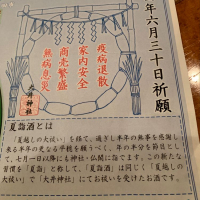 年六月三十日祈願
疫病退散
家内安全
商売繁盛
無病息災
大井神社
夏詣酒とは
「夏越しの大祓い」を経て、過ぎし半年の無事を感謝し
来る半年の更なる平穏を願うべく、年の半分を節目とし
て、七月一日以降にも神社・仏閣に詣でます。この新たな
習慣を「夏詣」と称して、「夏詣酒」は同じく「夏越しの
大祓い」で「大井神社」にてお祓いを受けたお酒です。